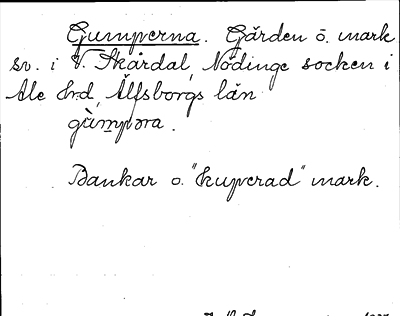 Gumperna. Gården o. mark
sv. i V. Skårdal, Nödinge socken i
Ale hrd, Älfsborgs län
gùmpəra.
Bankar o. "kuperad" mark.